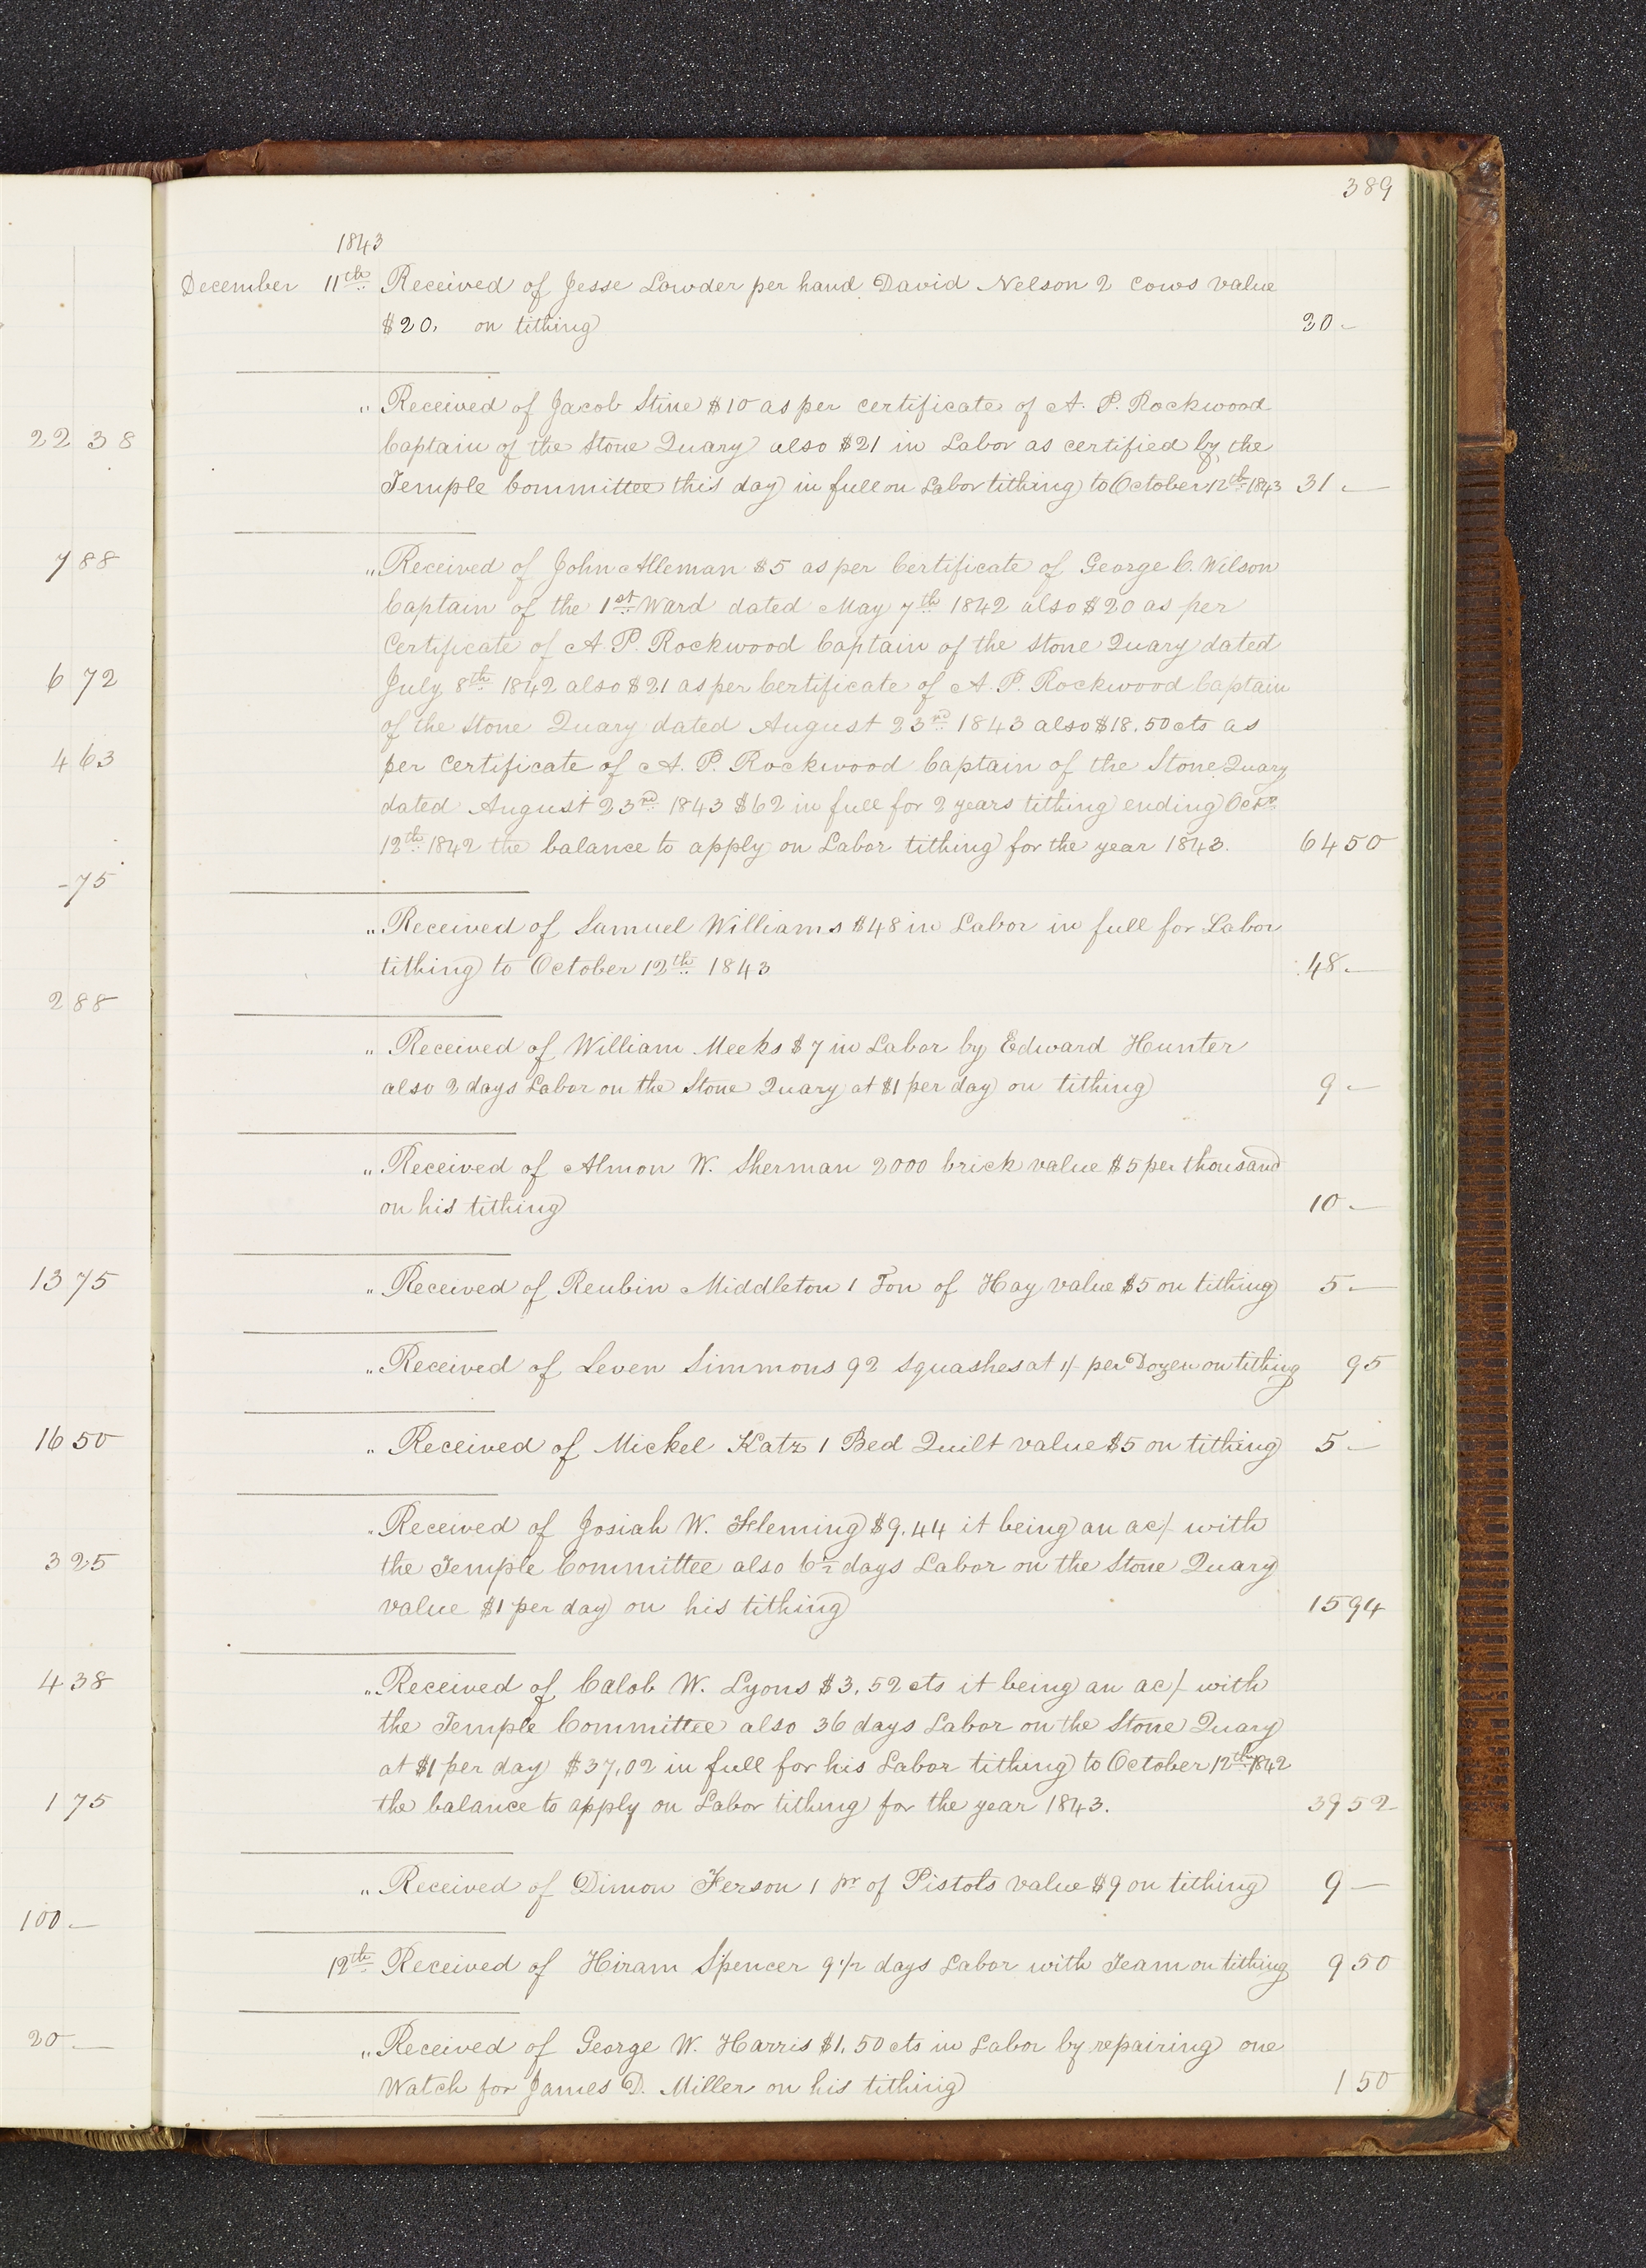 389
1843
December 11th Received of Jesse Lowder per hand David Nelson 2 Cows value
$20. on tithing 20 -
" Received of Jacob Stine $10 as per certificate of A. P. Rockwood
Captain of the Stone Quary also $21 in Labor as certified by the
Temple Committee this day in full on Labor tithing to October 12th 1843 31 -
" Received of John Alleman $5 as per Certificate of George C. Wilson
Captain of the 1st Ward dated May 7th 1842 also $20 as per
Certificate of A. P. Rockwood Captain of the Stone Quary dated
July 8th 1842 also $21 as per Certificate of A. P. Rockwood Captain
of the Stone Quary dated August 23rd 1843 also $18.50 cts as
per Certificate of A. P. Rockwood Captain of the Stone Quary
dated August 23rd 1843 $62 in full for 2 years tithing ending Octr
12th 1842 the balance to apply on Labor tithing for the year 1843. 64 50
" Received of Samuel Williams $48 in Labor in full for Labor
tithing to October 12th 1843 48 -
" Received of William Meeks $7 in Labor by Edward Hunter
also 2 days Labor on the Stone Quary at $1 per day on tithing 9 -
" Received of Almon W. Sherman 2000 brick value $5 per thousand
on his tithing 10 -
" Received of Reubin Middleton 1 Ton of Hay value $5 on tithing 5 -
" Received of Leven Simmons 92 Squashes at 1/- per Dozen on tithing 95
" Received of Mickel Katz 1 Bed Quilt value $5 on tithing 5 -
" Received of Josiah W. Fleming $9.44 it being an ac/- with
the Temple Committee also 6½ days Labor on the Stone Quary
value $1 per day on his tithing 15 94
" Received of Calob W. Lyons $3.52 cts it being an ac/- with
the Temple Committee also 36 days Labor on the Stone Quary
at $1 per day $37.02 in full for his Labor tithing to October 12th 1842
the balance to apply on Labor tithing for the year 1843. 39 52
" Received of Dimon Ferson 1 pr of Pistols value $9 on tithing 9 -
12th Received of Hiram Spencer 9 1/2 days Labor with Team on tithing 9 50
" Received of George W. Harris $1.50 cts in Labor by repairing one
Watch for James D. Miller on his tithing 1 50
22 38
7 88
6 72
4 63
- 75
2 88
13 75
16 50
3 25
4 38
1 75
100 -
20 -